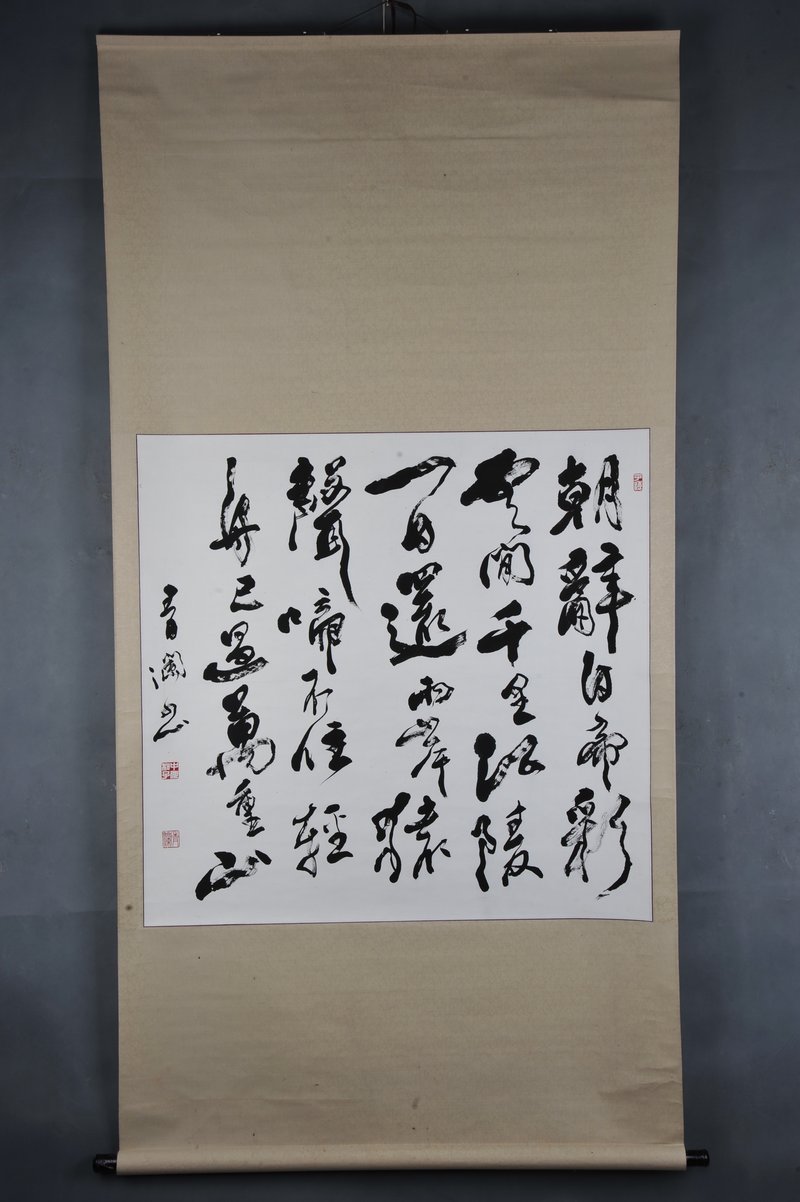 朝辭白帝彩
雲間千里江陵
一日還兩岸猿
聲啼不住輕
舟已過萬重山
青瀾书